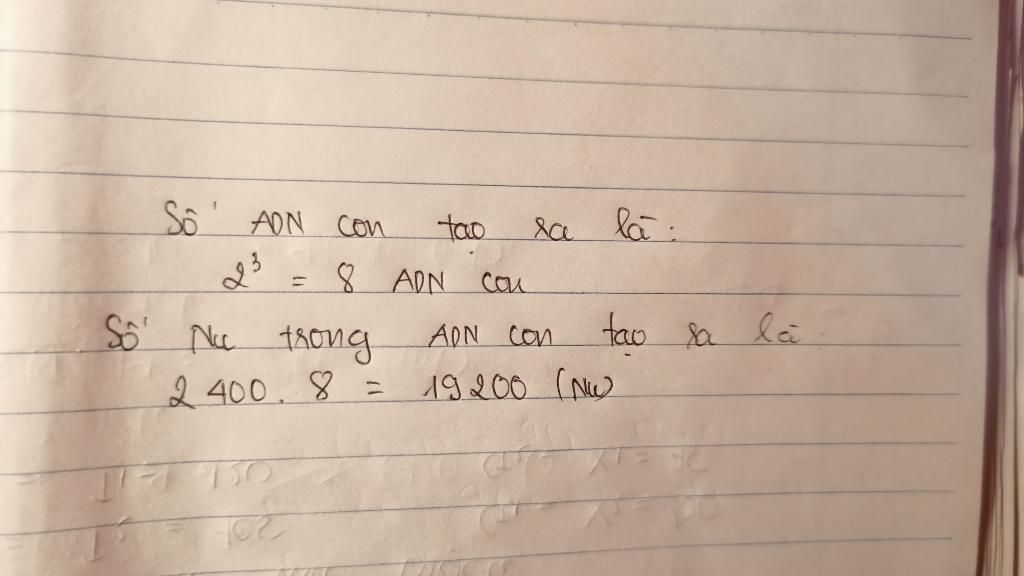 Số ADN con tạo ra là:
2³ = 8 ADN con
Số Nu trong ADN con tạo ra là:
2 400. 8 = 19 200 (Nu)